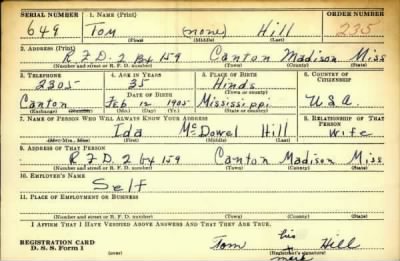 SERIAL NUMBER 1. NAME (Print) ORDER NUMBER
649 Tom (none) Hill 235
(First) (Middle) (Last)
2. ADDRESS (Print)
R.F.D. 2 Bx 159 Canton Madison Miss
(Number and street or R. F. D. number) (Town) (County) (State)
3. TELEPHONE 4. AGE IN YEARS 5. PLACE OF BIRTH 6. COUNTRY OF CITIZENSHIP
2305 35 Hinds
DATE OF BIRTH (Town or county)
Canton Feb 12 1905 Mississippi U.S.A.
(Exchange) (Number) (Mo.) (Day) (Yr.) (State or country)
7. NAME OF PERSON WHO WILL ALWAYS KNOW YOUR ADDRESS 8. RELATIONSHIP OF THAT PERSON
Ida McDowel Hill wife
(Mr., Mrs., Miss) (First) (Middle) (Last)
9. ADDRESS OF THAT PERSON
R.F.D. 2 bx 159 Canton Madison Miss.
(Number and street or R. F. D. number) (Town) (County) (State)
10. EMPLOYER'S NAME
Self
11. PLACE OF EMPLOYMENT OR BUSINESS
(Number and street or R. F. D. number) (Town) (County) (State)
I AFFIRM THAT I HAVE VERIFIED ABOVE ANSWERS AND THAT THEY ARE TRUE.
REGISTRATION CARD
D. S. S. Form 1 (over)
his
Tom x Hill
(Registrant's signature)
mark